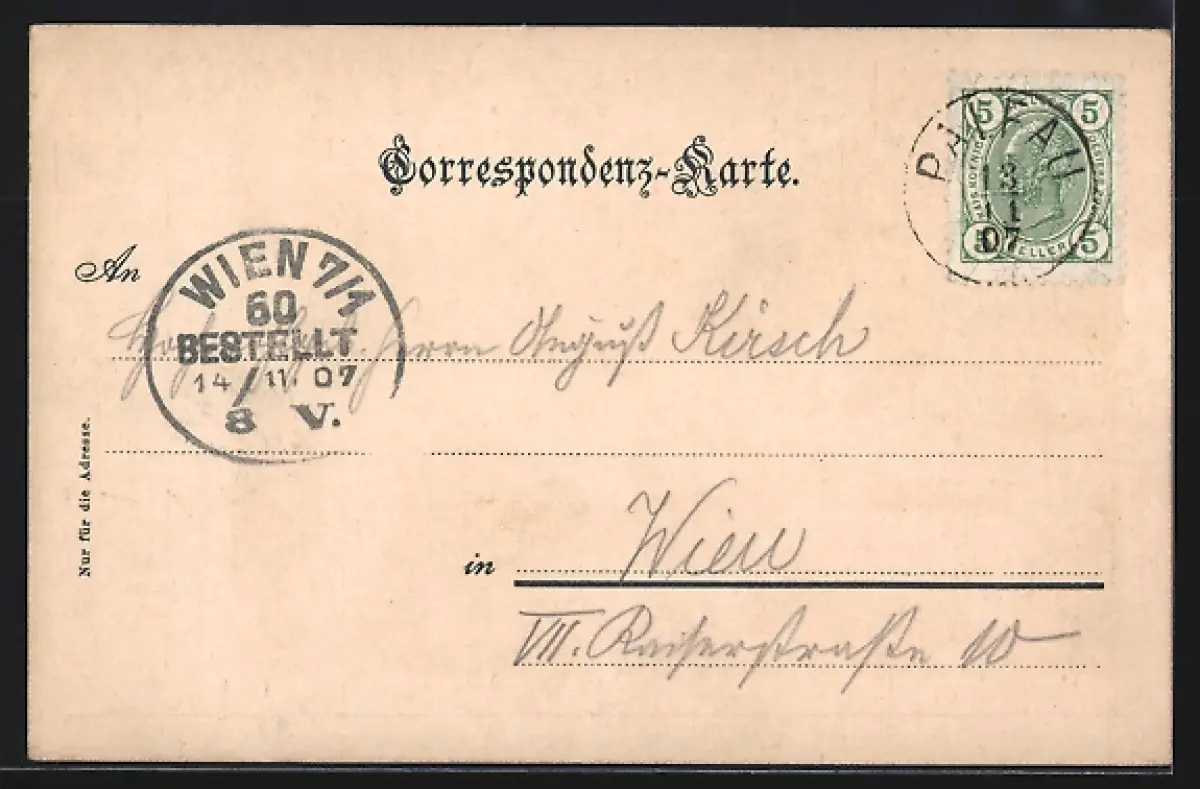 Correspondenz-Karte.
PALFAU
13
11
07
5 5
5 HELLER 5
An
WIEN 7/1
60
BESTELLT
14 11 07
8 V.
Herrn August Kirsch
Nur für die Adresse.
in Wien
VII. Kaiserstraße 10